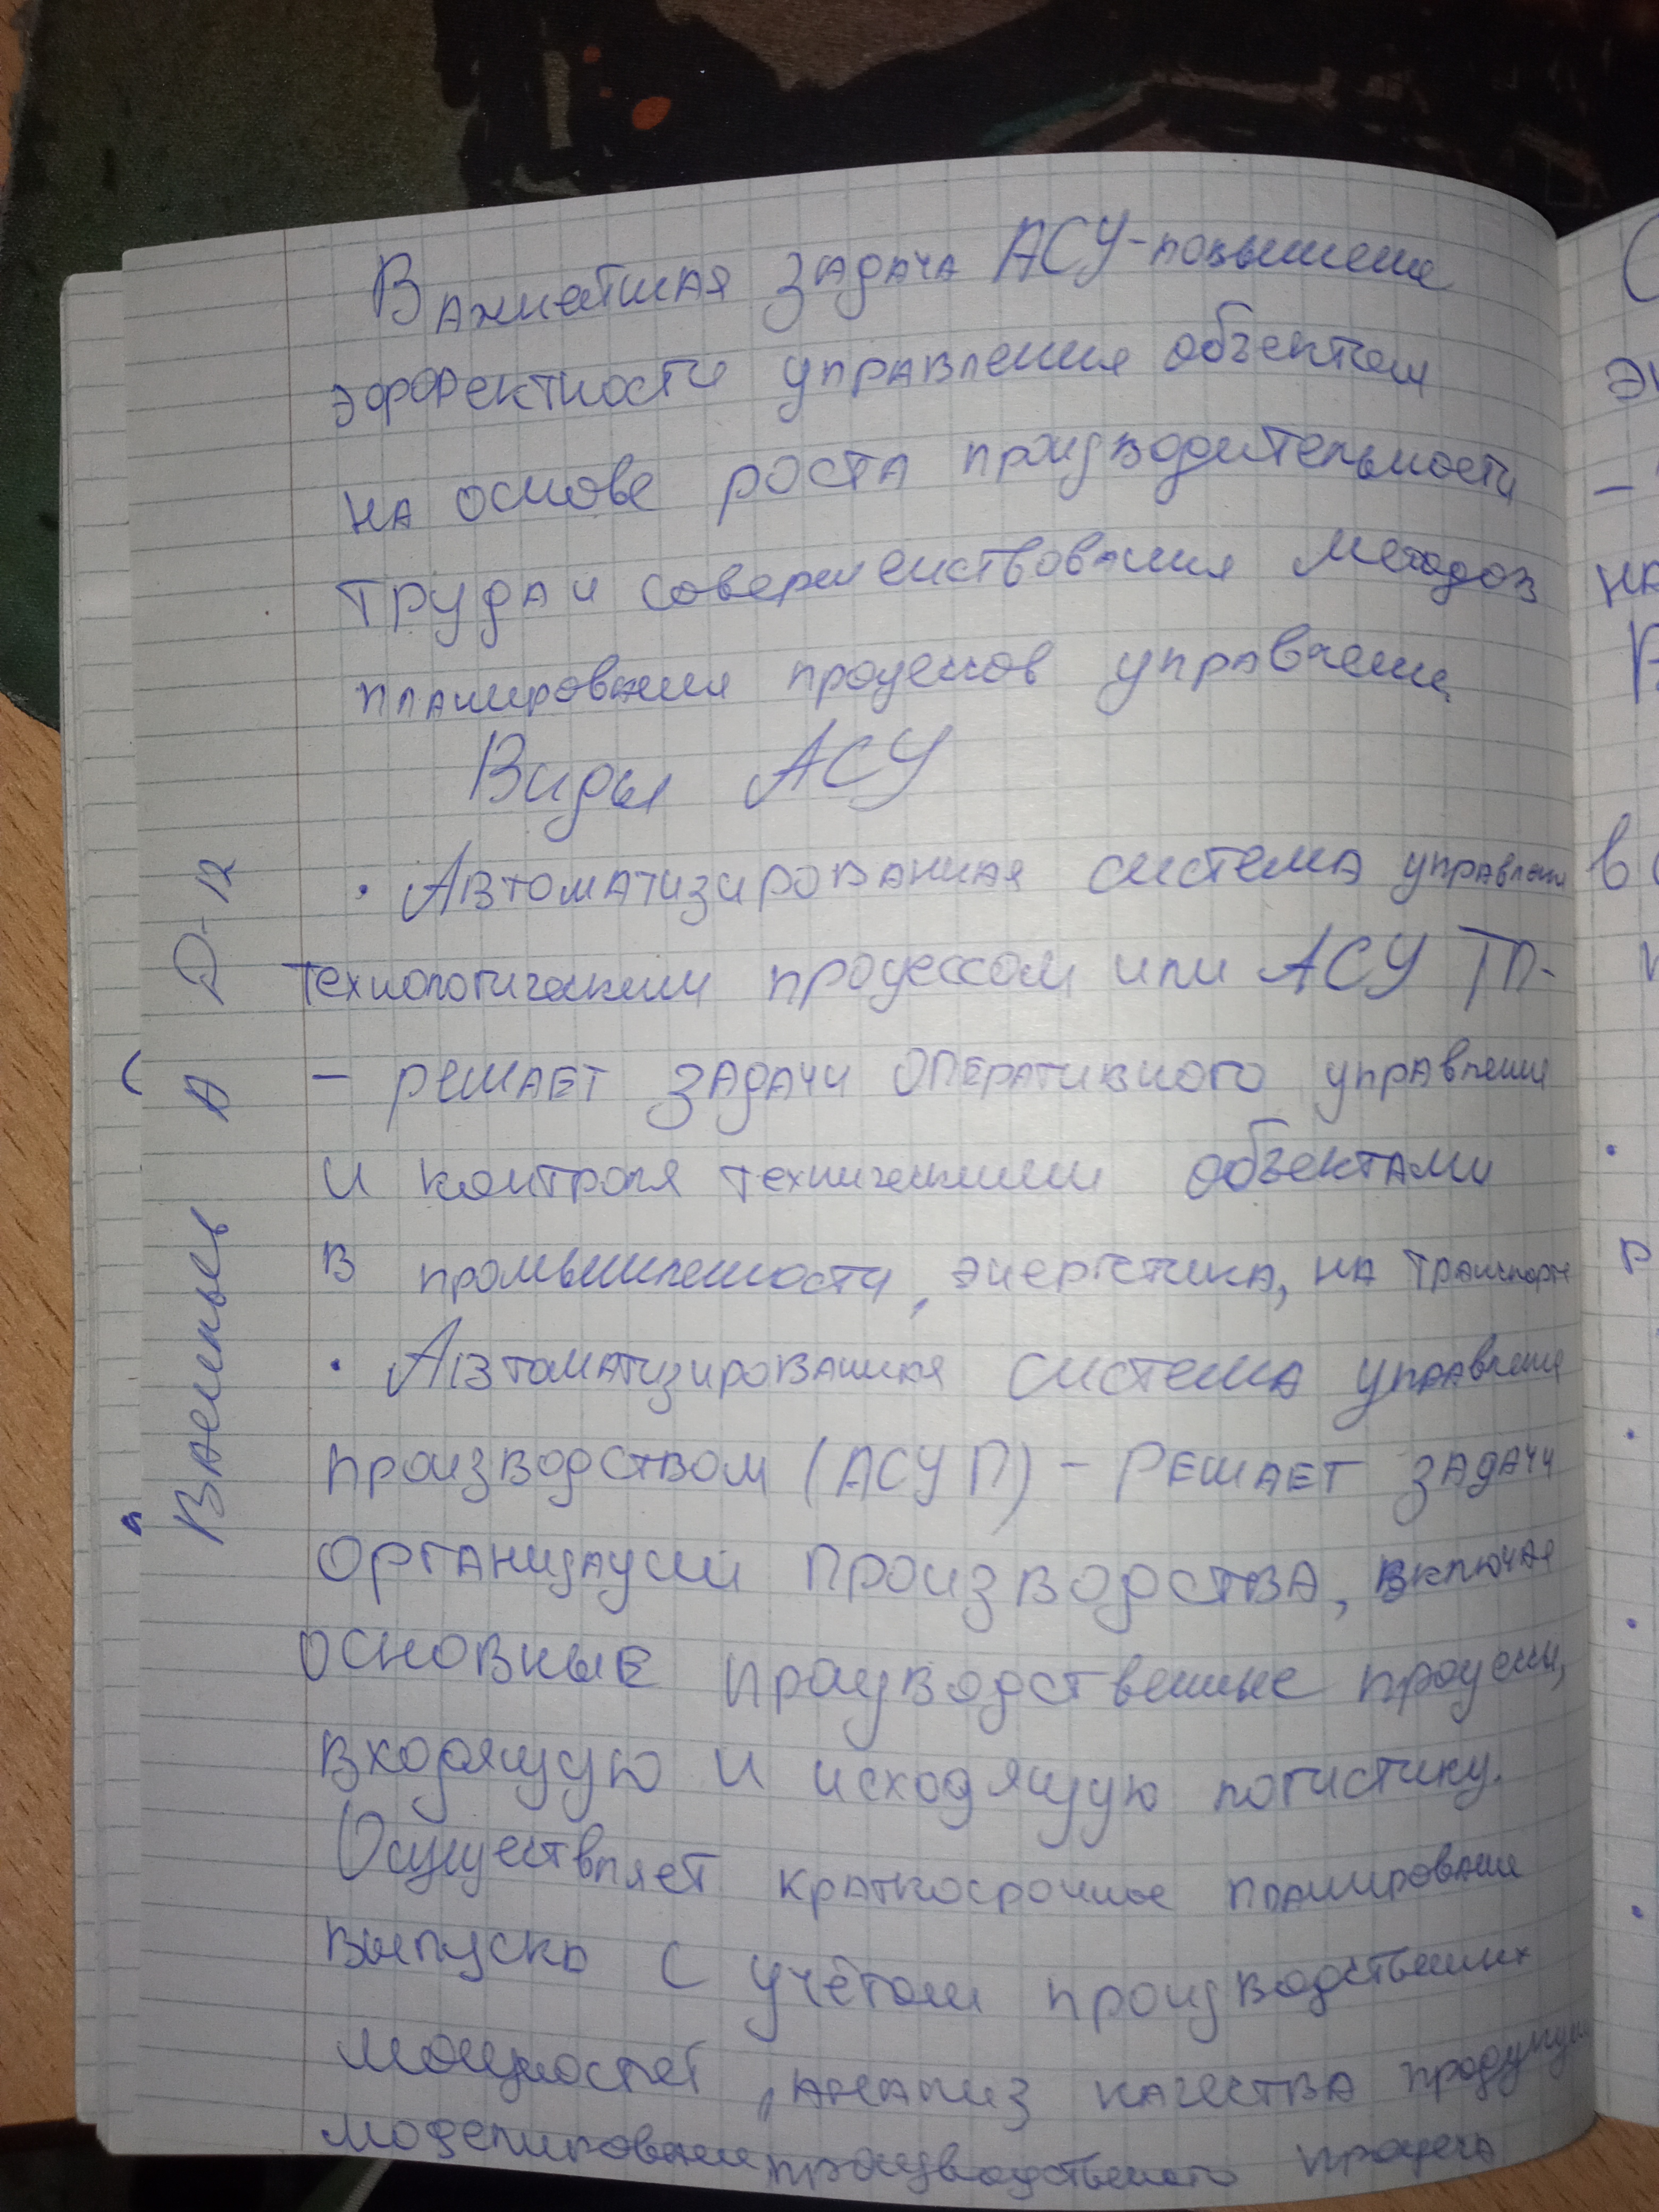 Важнейшая задача АСУ-повышение
эффектности управления объектом
на основе роста производительности
труда и совершенствования методов
планирования процессов управления
Виды АСУ
· Автоматизированная система управления
технологическим процессом или АСУ ТП-
- решает задачи оперативного управления
и контроля техническими объектами
в промышленности, энергетика, на транспорте
· Автоматизированная система управления
производством (АСУ П) - Решает задачи
организации производства, включая
основные производственные процессы,
входящую и исходящую логистику.
Осуществляет краткосрочное планирование
выпуска с учётом производственных
мощностей, анализ качества продукции
моделирование производственного процесса
А Д-12
э
-
на
в
·
Р
·
·
·